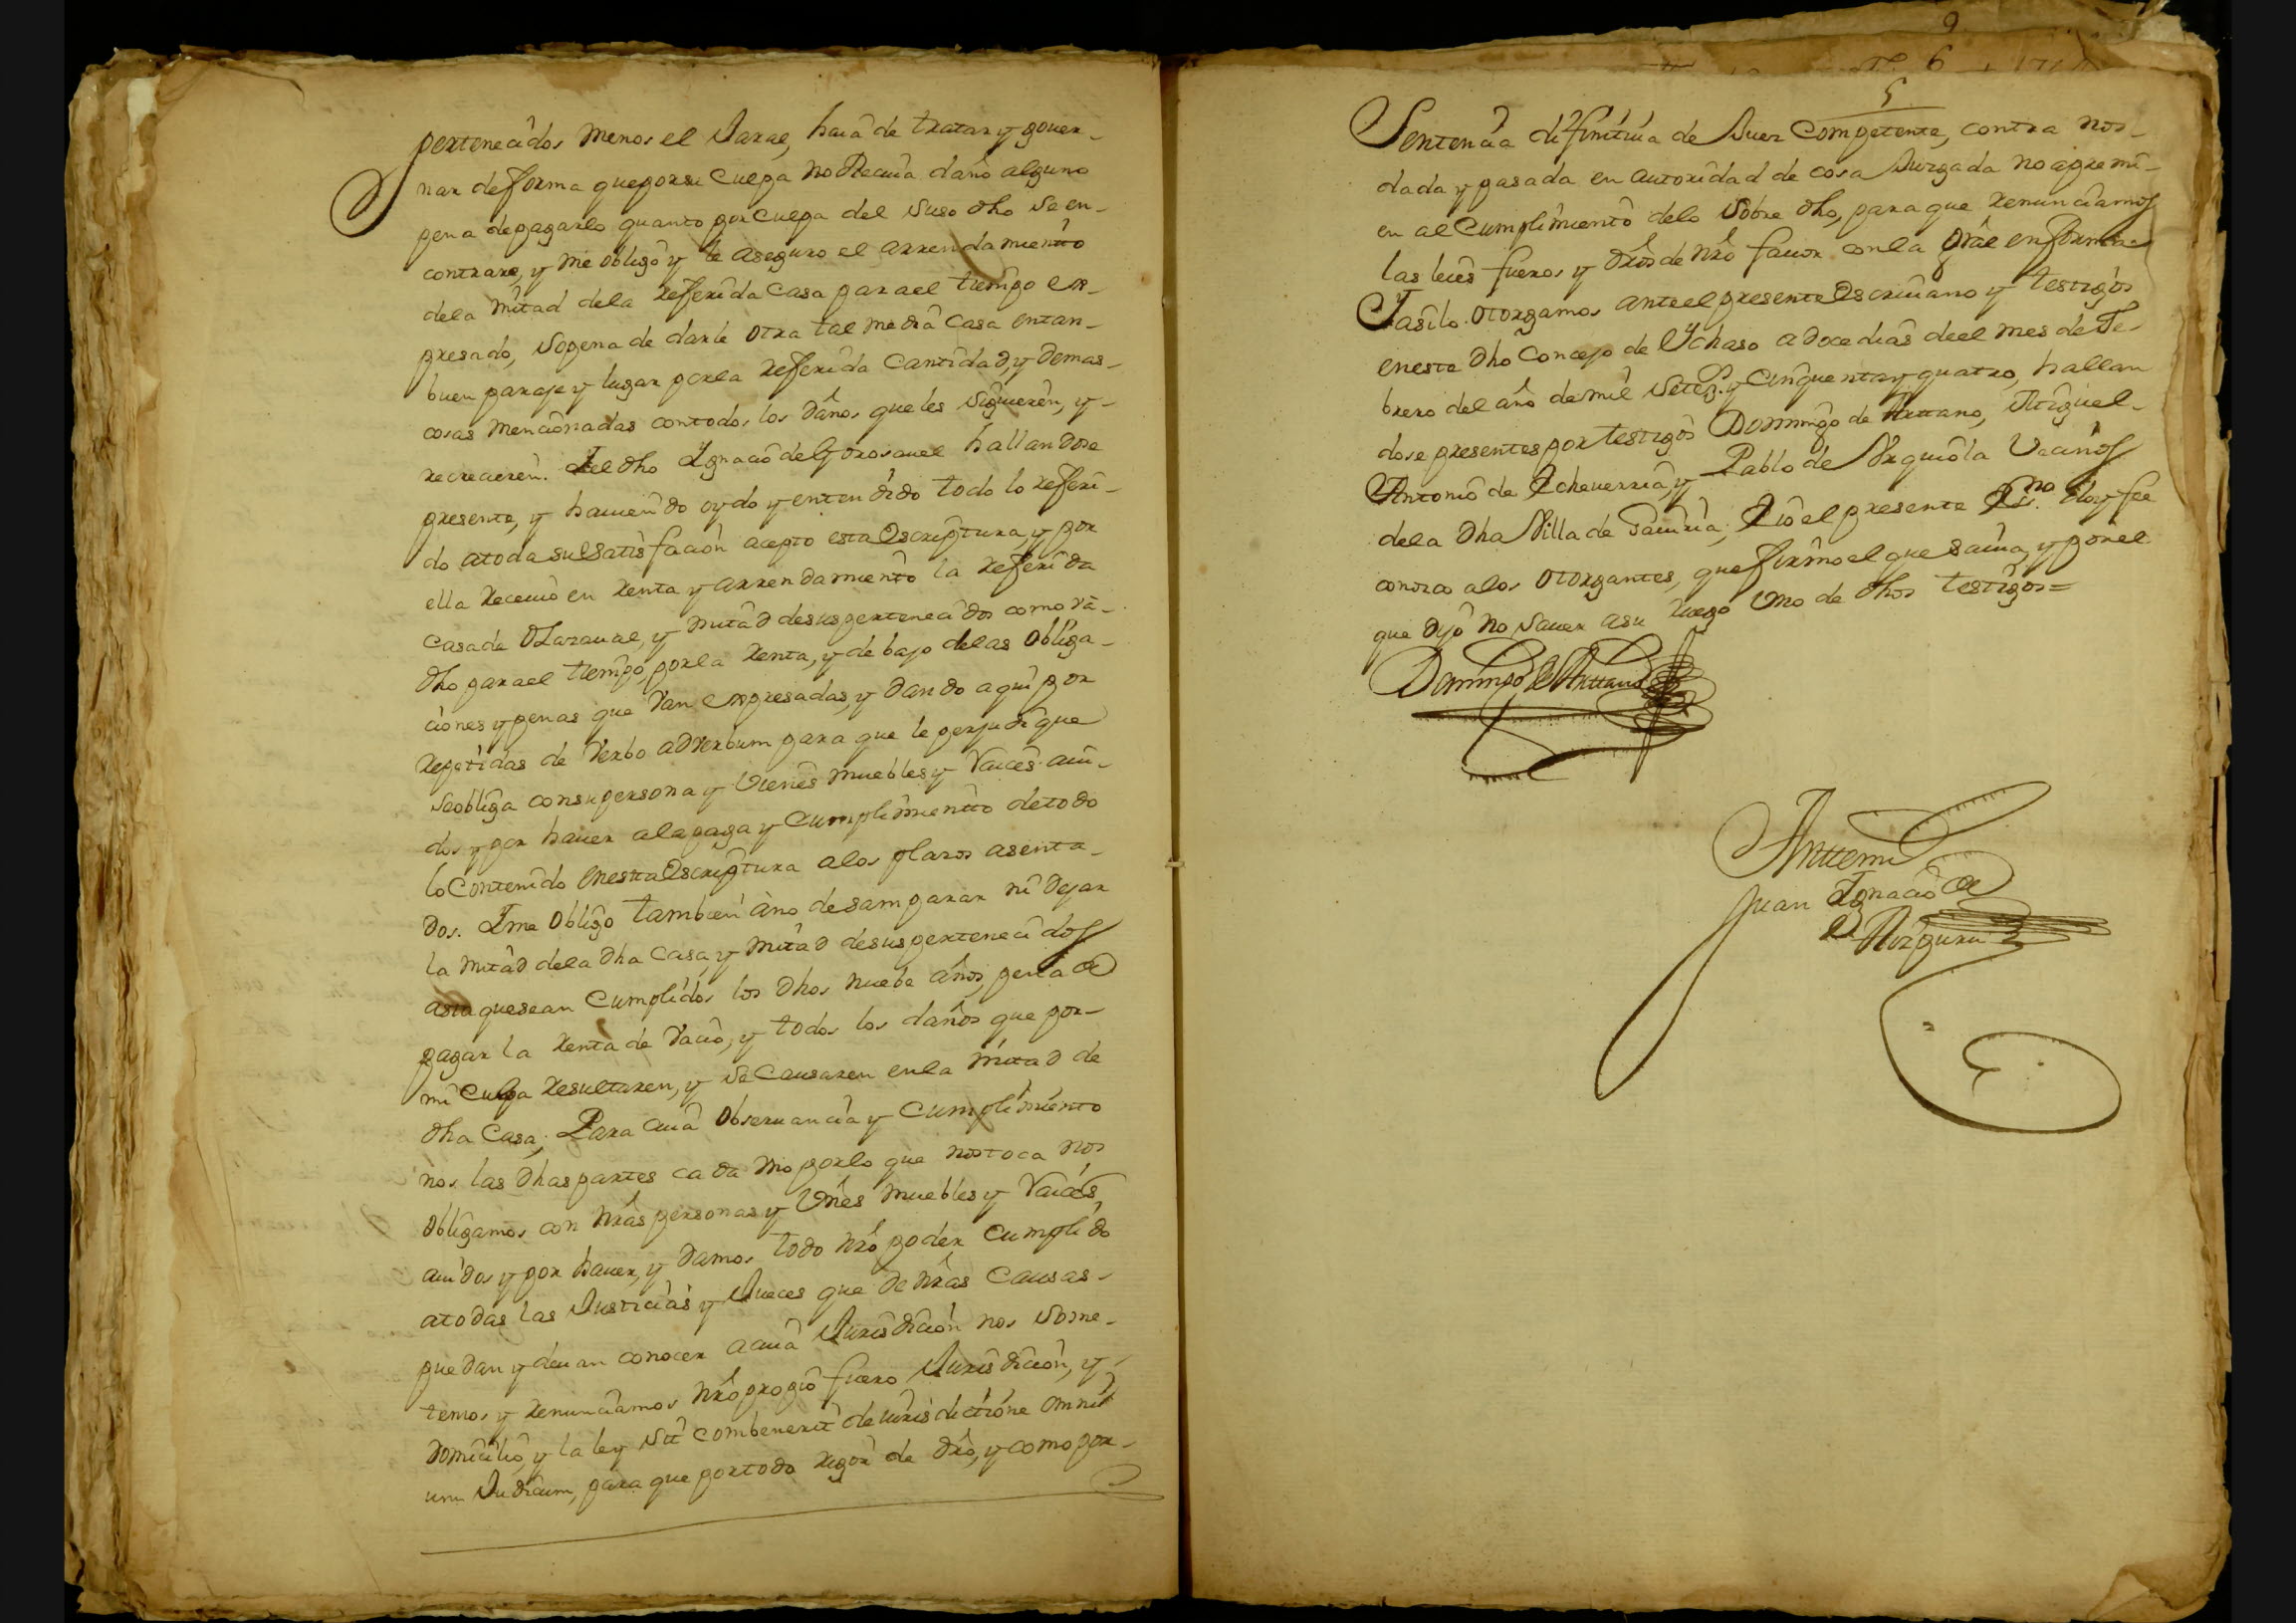 pertenecidos menos el Jarae, hauâ de tratar y gouer-
nar de forma que por su Culpa no Reciua daño alguno
pena de pagarlo quanto por Culpa del Suso dho Se en-
contrare, y me obligo y le aseguro el arrendamiento
dela mitad dela referida Casa para el tiempo ex-
presado, Sopena de darle otra tal media Casa en tan
buen paraje y lugar por la referida Cantidad, y demas-
cosas mencionadas con todos los daños que les Siguieren, y-
recrecieren. I el dho Ignacio de Gorosauel hallandose
presente, y hauiendo oydo y entendido todo lo referi-
do a toda su Satisfacion acepto esta Escriptura, y por
ella Receuio en renta y arrendamiento la referida
Casa de Olarauae, y mitad de sus pertenecidos como vâ-
dho para el tiempo, por la renta, y de bajo de las obliga-
ciones y penas que van expresadas, y dando aqui por
repetidas de verbo adverbum para que le perjudique
Se obliga con su persona y vienes muebles y raices aui-
dos y por hauer a la paga y Cumplimiento de todo
lo Contenido en esta Escriptura a los plazos asenta-
dos. I me obligo tambien âno desamparar ni dejar
la mitad dela dha Casa, y mitad de sus pertenecidos
asta que sean Cumplidos los dhos nuebe años, pena de
pagar la renta de vacio, y todos los daños que por-
mi Culpa resultaren, y Se Causaren en la mitad de
dha Casa; Para cuia obseruancia y Cumplimiento
nos las dhas partes cada vno por lo que nos toca nos
obligamos con nrâs personas y vnês muebles y raices,
auidos y por hauer, y damos todo nrô poder Cumplido
a todas las Justicias y Jueces que de nrâs Causas-
puedan y deuan conocer a cuia Jurisdicion nos Some-
temos y renunciamos nrô propio fuero Jurisdicion, y-
domicilio, y la ley Sit combenerit de Jurisdictione omni-
um Judicum, para que por todo rigor de drô, y como por-
9
6
5
Sentencia difinitiua de Juez Competente, contra nos-
dada y pasada en autoridad de cosa Juzgada nos apremi-
en al Cumplimiento delo Sobre dho, para que renunciamos
las leies fueros y drôs de nrô fauor con la grâl en forma
I asi lo otorgamos ante el presente Escriuano y testigos
en este dho Concejo de Ychaso a doce dias de el mes de Fe-
brero del año de mil Setez.s y Cinquenta y quatro, hallan
dose presentes por testigos Domingo de Arttano, Miguel-
Antonio de Echeuerria, y Pablo de Vrquiola Vecinos
dela dha Villa de Sauiria; E io el presente Ess.no doy fee
conozco a los otorgantes, que firmo el que Sauia, y por el
que dijo no Sauer a su ruego vno de dhos testigos=
Domingo de Arttano
Anttemi
Juan Ignacio de